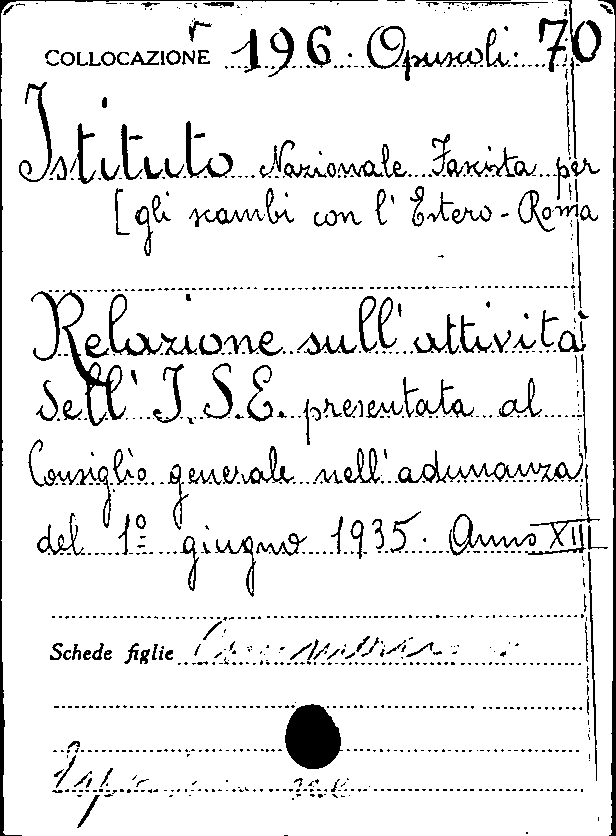 COLLOCAZIONE 196. Opuscoli. 70
Istituto Nazionale Fascista per
[gli scambi con l'Estero - Roma
Relazione sull'attività
dell'I.S.E. presentata al
Consiglio generale nell'adunanza
del 1º giugno 1935. Anno XIII
Schede figlie